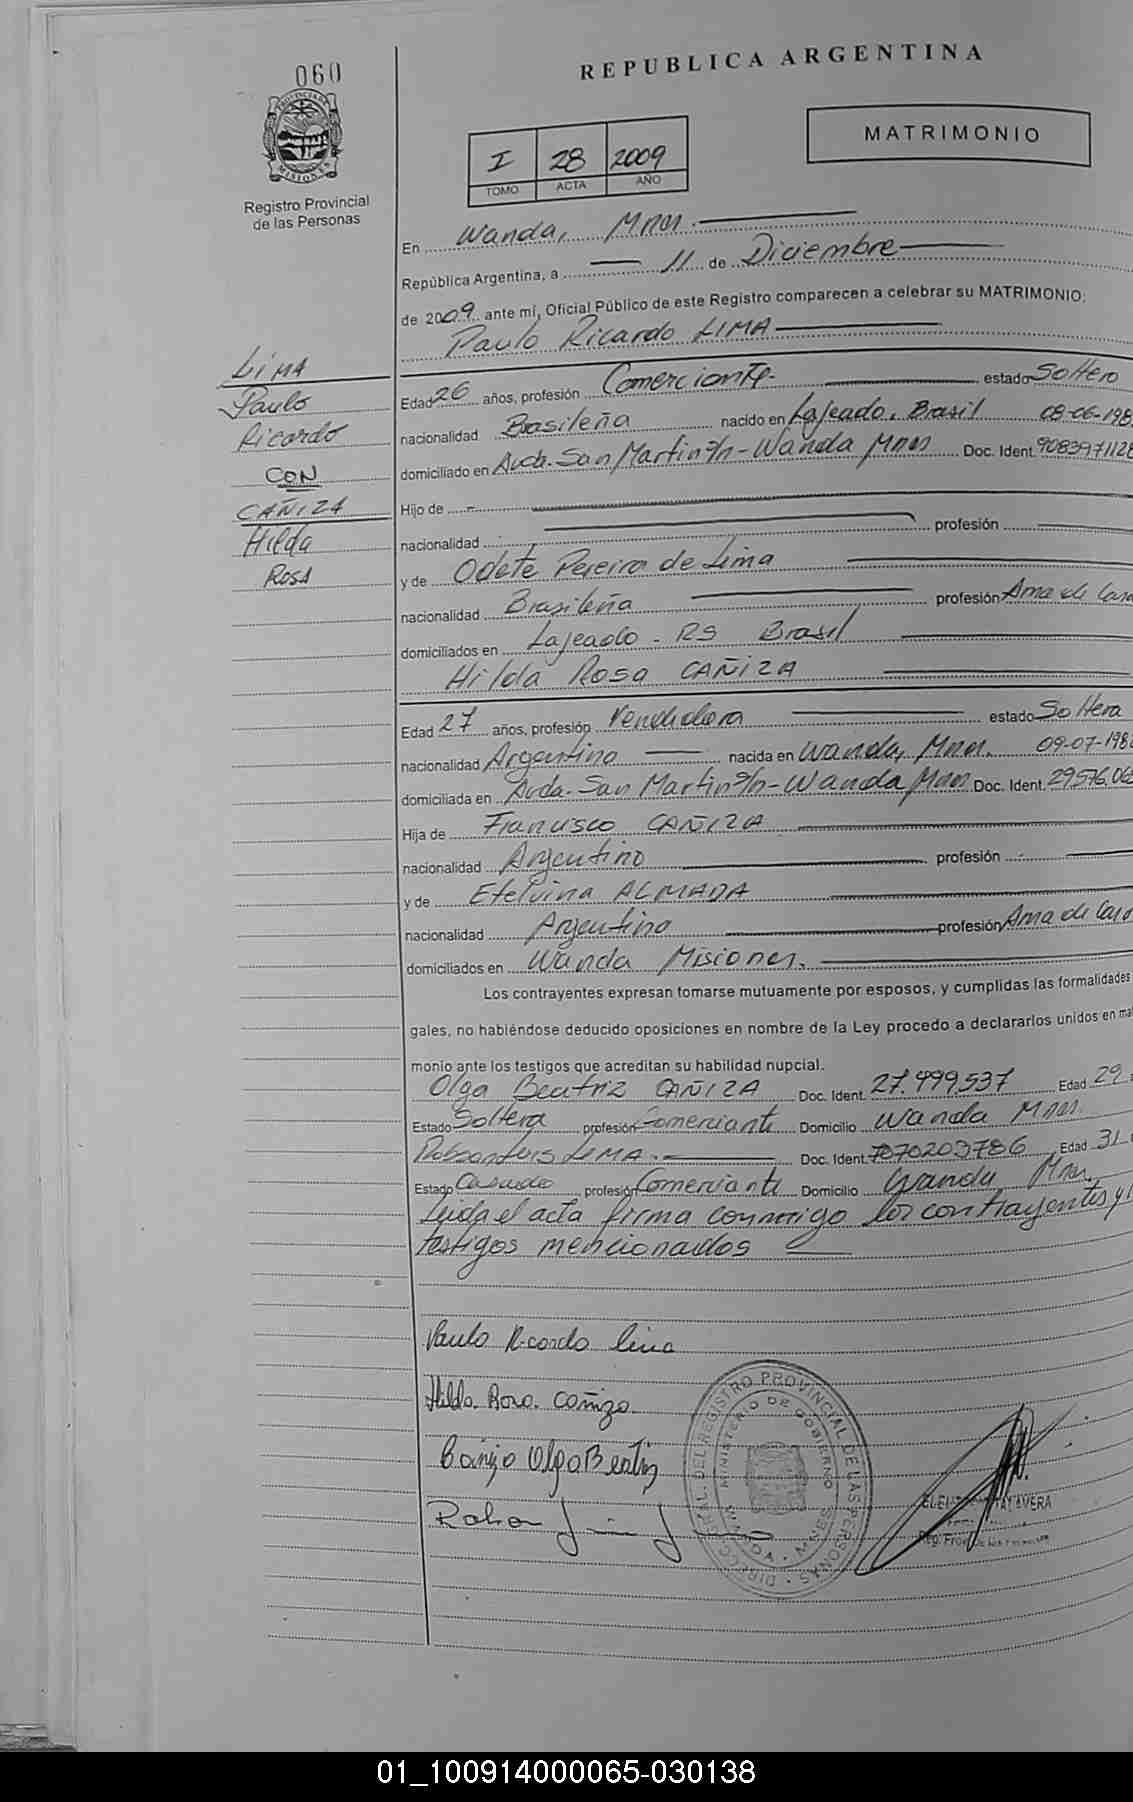 060
REPUBLICA ARGENTINA
MATRIMONIO
I 28 2009
TOMO ACTA AÑO
PROVINCIA DE MISIONES
Registro Provincial
de las Personas
En Wanda, Mnes.
República Argentina, a 11 de Diciembre
de 2009 ante mí, Oficial Público de este Registro comparecen a celebrar su MATRIMONIO:
Paulo Ricardo LIMA
LIMA
Paulo
Ricardo
CON
CAÑIZA
Hilda
ROSA
Edad 26 años, profesión Comerciante. estado Soltero
nacionalidad Brasileña nacido en Lajeado, Brasil 08-06-198
domiciliado en Avda. San Martin s/n - Wanda Mnes Doc. Ident. 9083971128
Hijo de
nacionalidad profesión
y de Odete Pereira de Lima
nacionalidad Brasileña profesión Ama de Casa
domiciliados en Lajeado - RS Brasil
Hilda Rosa CAÑIZA
Edad 27 años, profesión Vendedora estado Soltera
nacionalidad Argentina nacida en Wanda, Mnes. 09-07-198
domiciliada en Avda. San Martin s/n - Wanda Mnes Doc. Ident. 29.576.06
Hija de Francisco CAÑIZA
nacionalidad Argentino profesión
y de Etelvina ALMADA
nacionalidad Argentina profesión Ama de Casa
domiciliados en Wanda Misiones.
Los contrayentes expresan tomarse mutuamente por esposos, y cumplidas las formalidades
gales, no habiéndose deducido oposiciones en nombre de la Ley procedo a declararlos unidos en ma
monio ante los testigos que acreditan su habilidad nupcial.
Olga Beatriz CAÑIZA Doc. Ident. 27.499.537 Edad 29
Estado Soltera profesión Comerciante Domicilio Wanda Mnes.
Robson Luis LIMA. Doc. Ident. 7070203786 Edad 31
Estado Casado profesión Comerciante Domicilio Wanda, Mnes.
Leida el acta firma conmigo los contrayentes y
testigos mencionados
Paulo Ricardo Lima
Hilda Rosa Cañiza
Cañiza Olga Beatriz
DIRECC. GRAL. DEL REGISTRO PROVINCIAL DE LAS PERSONAS
MINISTERIO DE GOBIERNO
WANDA - MNES
TALAVERA
01_100914000065-030138